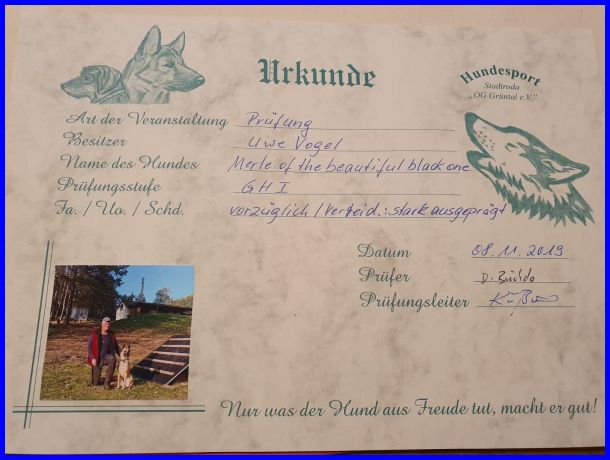 Urkunde
Hundesport
Stadtroda
„OG Grüntal e.V."
Art der Veranstaltung Prüfung
Besitzer Uwe Vogel
Name des Hundes Merle of the beautiful black one
Prüfungsstufe GH I
Fa. / Uo. / Schd. vorzüglich / Verteid.: stark ausgeprägt
Datum 08.11.2019
Prüfer D.
Prüfungsleiter
Nur was der Hund aus Freude tut, macht er gut!